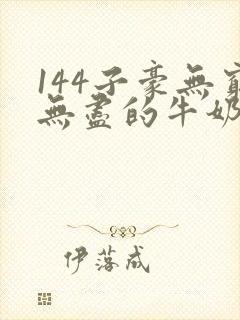 144子豪無窮
無盡的牛奶
伊落成